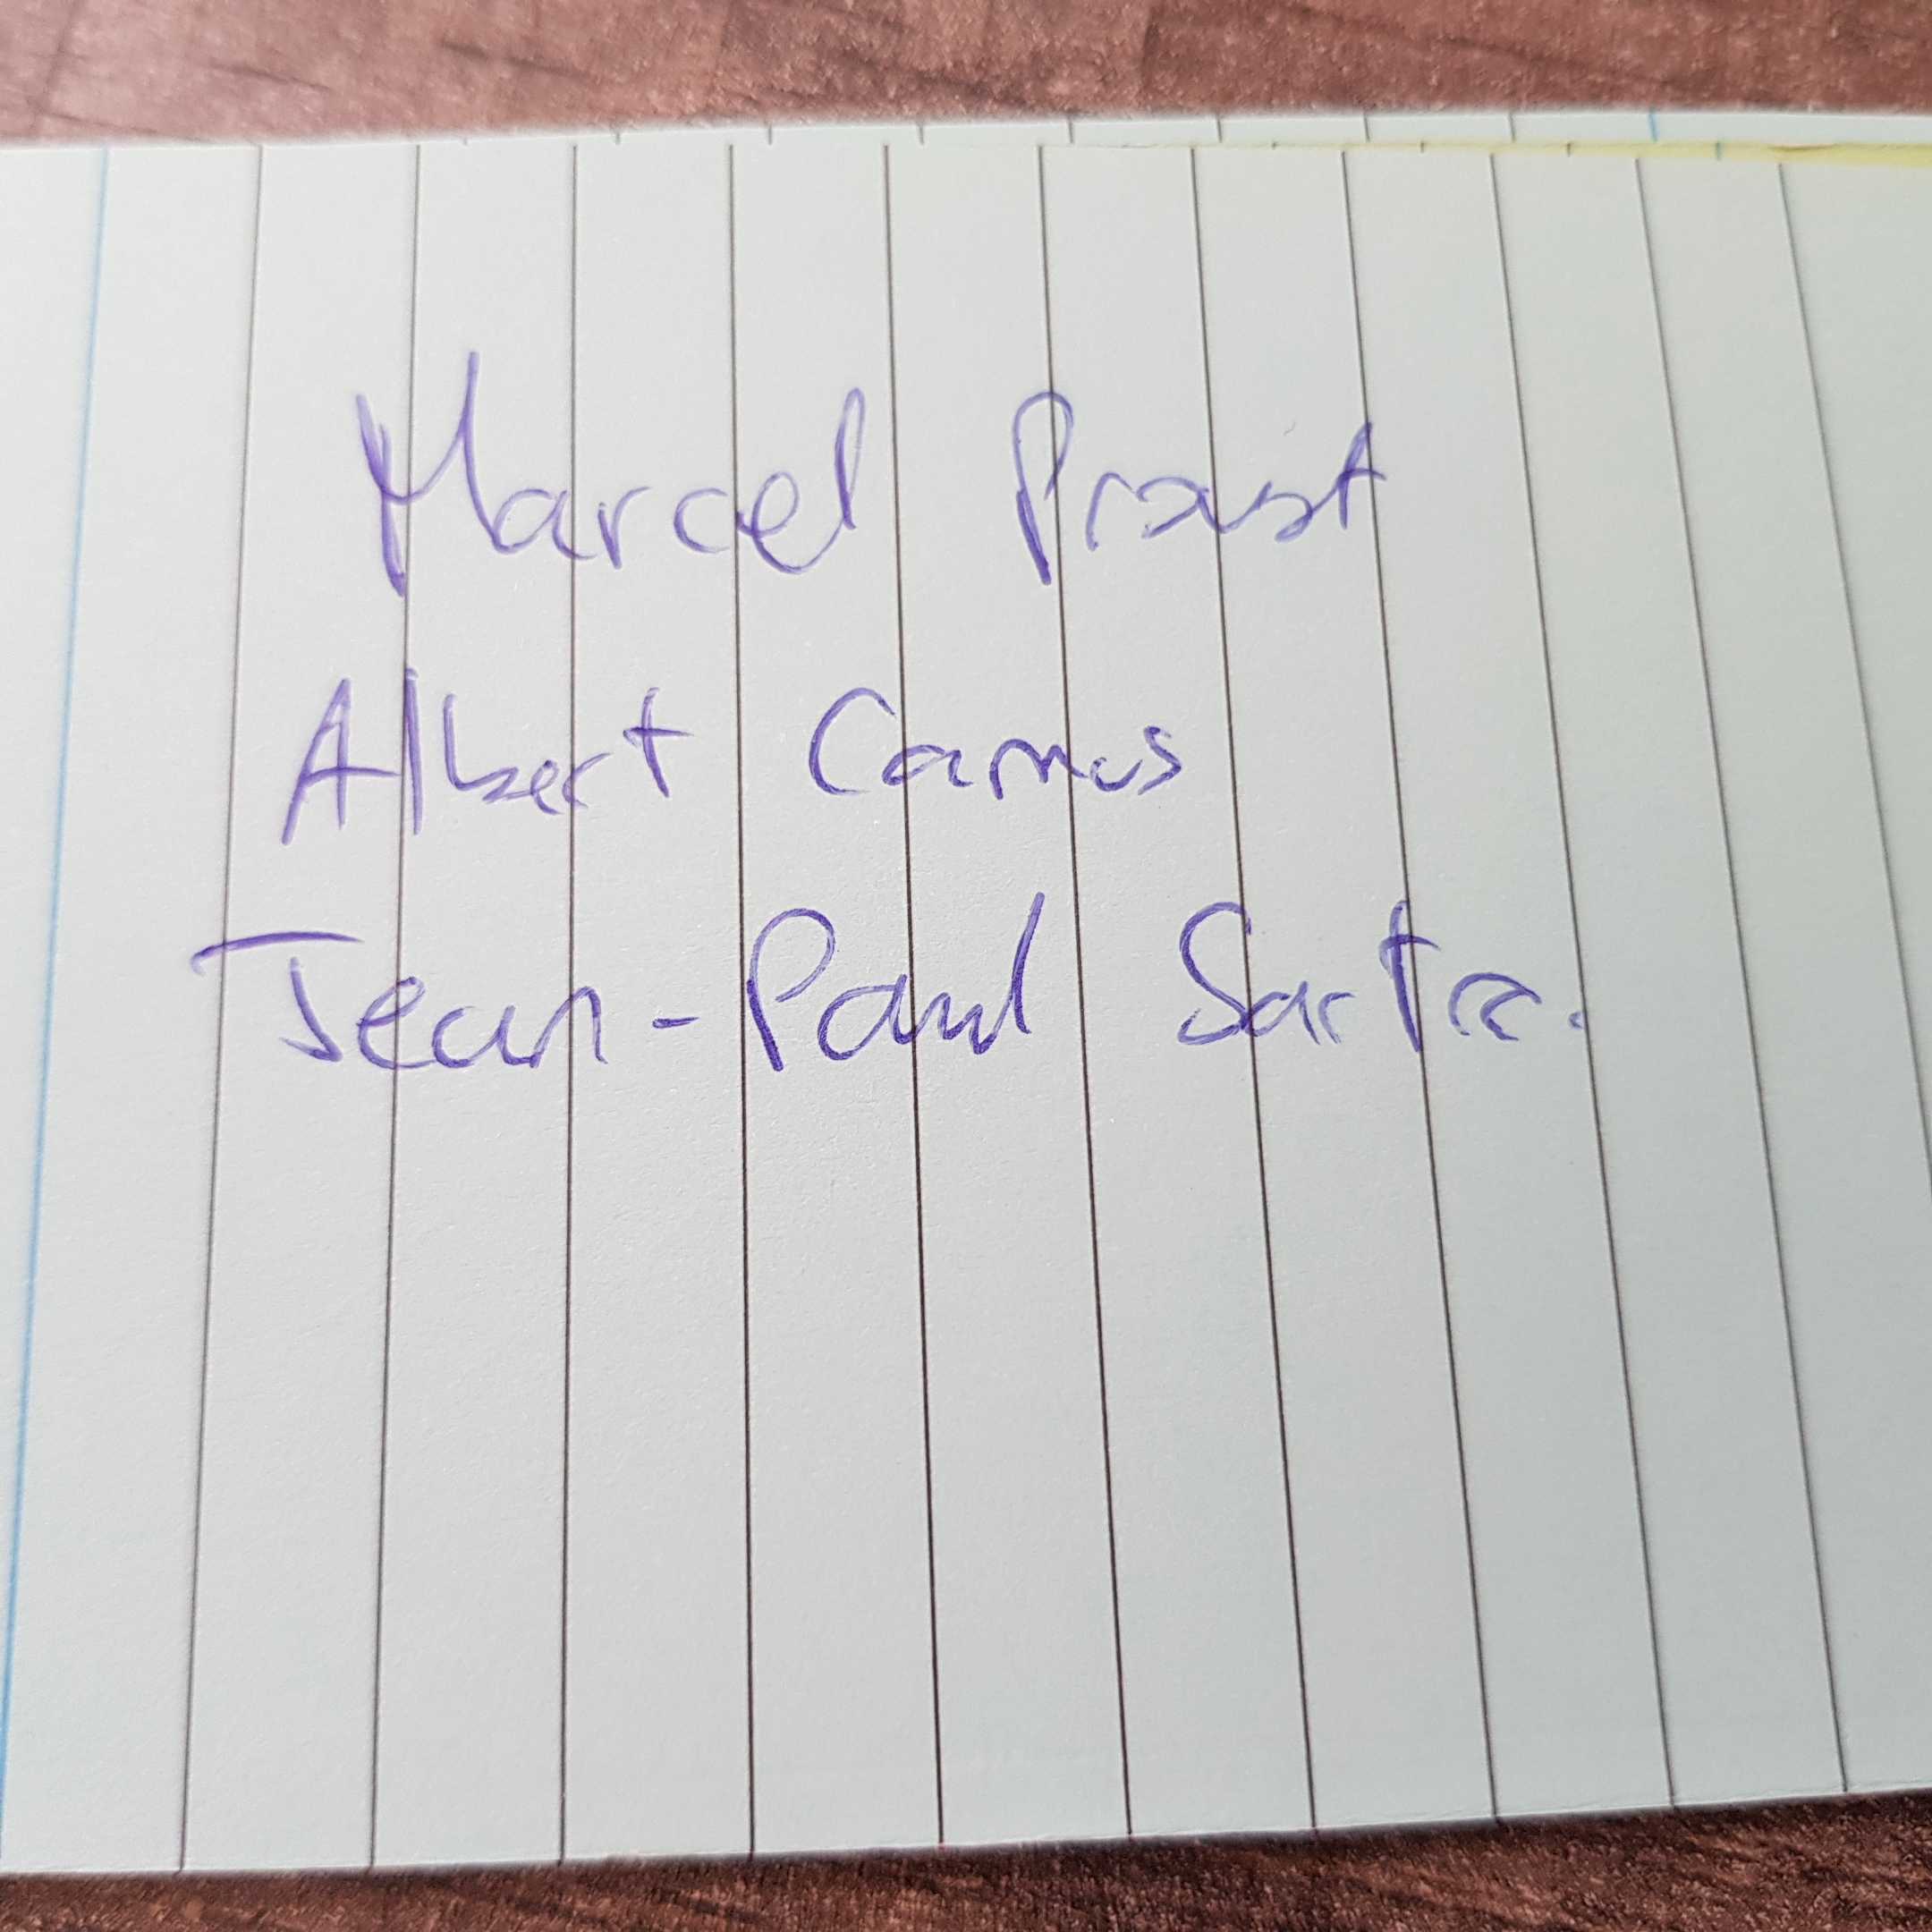 Marcel Proust
Albert Camus
Jean-Paul Sartre.